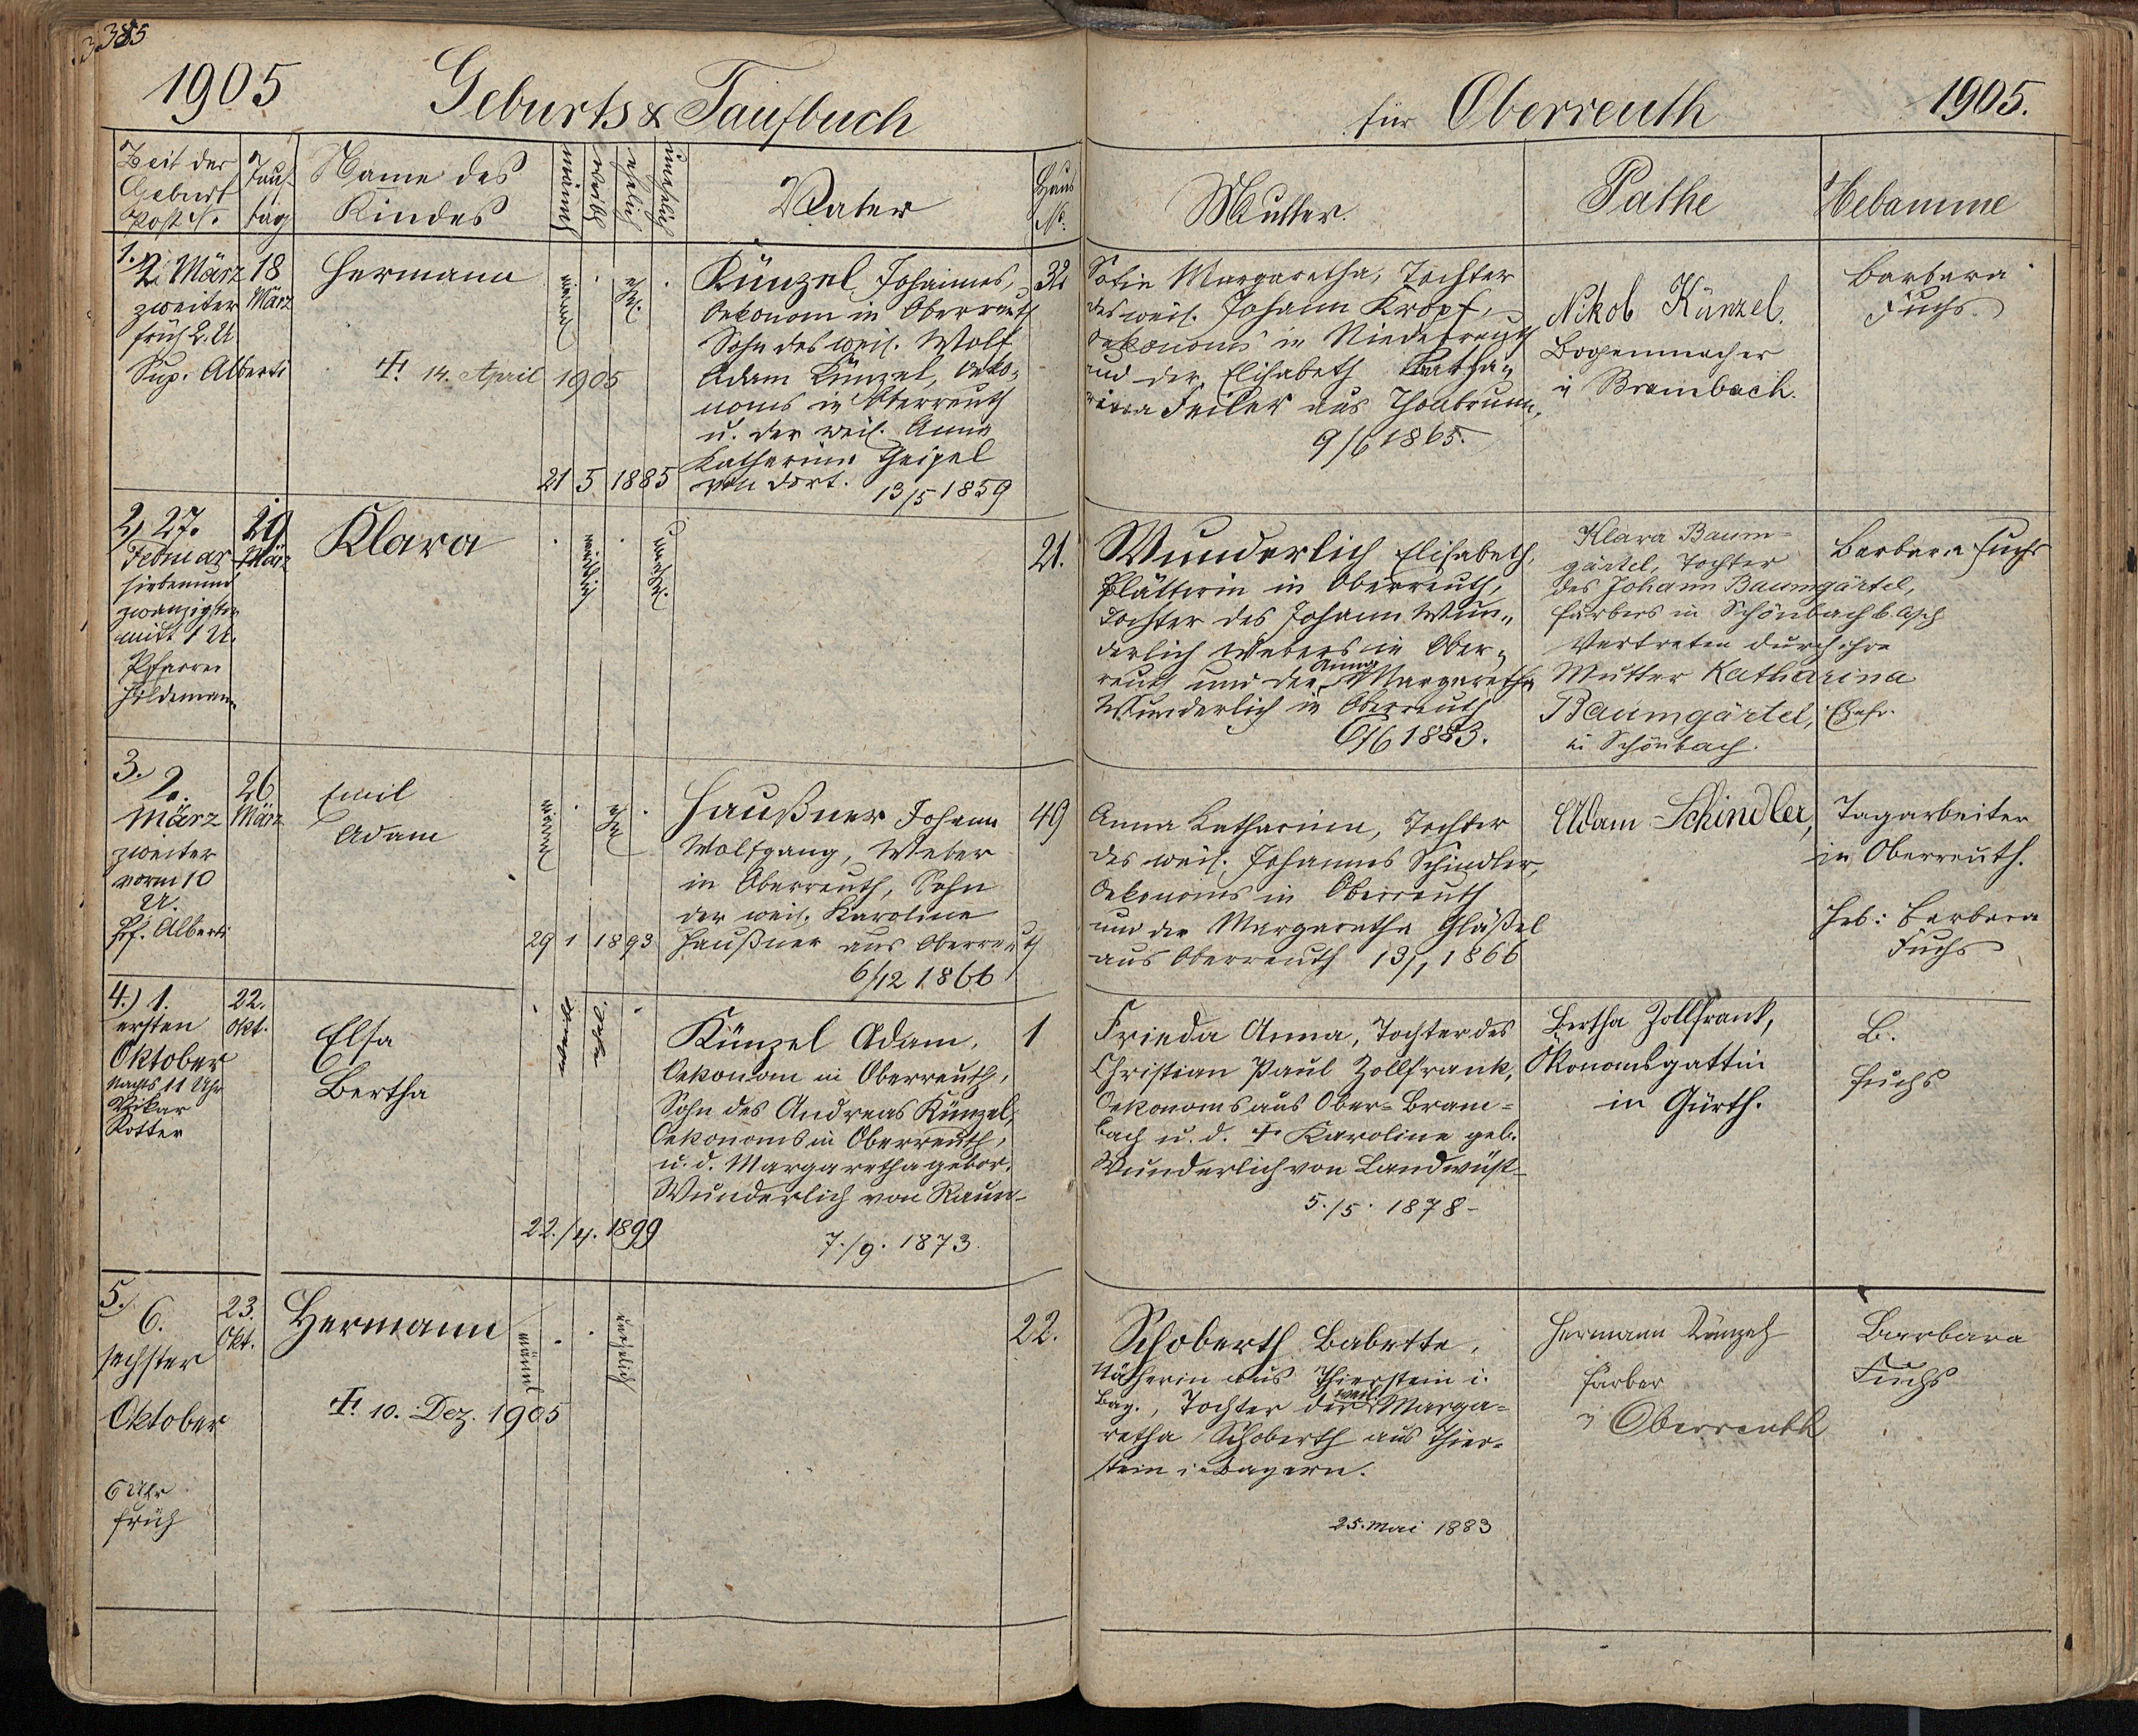 385
1905 Geburts & Taufbuch
für Oberreuth 1905.
Zeit der
Geburt
Post N.
Tauf-
tag
Name des
Kindes
männl
weibl
ehelich
unehelich
Vater
Haus
No.
Mutter.
Pathe
Hebamme
1. 2. März
zweiter
früh 2. U
Sup. Alberti
18
März
Hermann
✝ 14. April 1905
männl
ehl.
21 5 1885
Künzel, Johannes,
Oekonom in Oberreuth
Sohn des weil. Wolf
Adam Künzel, Oeko-
noms in Oberreuth
u. der weil. Anna
Katharina Geipel
von dort. 13/5 1859
32
Sofie Margaretha, Tochter
des weil. Johann Kropf,
Oekonoms in Niederreuth
und der Elisabeth Katha-
rina Feiler aus Thonbrunn.
9/6 1865.
Nikol Künzel.
Bogenmacher
in Brambach.
Barbara
Fuchs.
2, 27.
Februar
siebenund
zwanzigster
mitt 1 U.
Pfarrer
Hildemann
29
März
Klara
weiblich
unehel.
21.
Wunderlich Elisabeth,
Plätterin in Oberreuth,
Tochter des Johann Wun-
derlich Webers in Ober-
reuth und der Anna Margaretha
Wunderlich in Oberreuth
6/6 1883.
Klara Baum-
gärtel, Tochter
des Johann Baumgärtel,
Färbers in Schönbach b. Asch
Vertreten durch ihre
Mutter Katharina
Baumgärtel, Ehefr.
in Schönbach.
Barbara Fuchs
3. 2.
März
zweiter
vorm 10
U.
Pf. Alberti
26
März
Emil
Adam
männl
ehl
29 1 1893
Haußner Johann
Wolfgang, Weber
in Oberreuth, Sohn
der weil. Karoline
Haußner aus Oberreuth
6/12 1866
49
Anna Katharina, Tochter
des weil. Johannes Schindler,
Oekonoms in Oberreuth
und der Margaretha Gläßel
aus Oberreuth 13/1 1866
Adam Schindler, Tagarbeiter
in Oberreuth.
Heb: Barbara
Fuchs
4.) 1.
ersten
Oktober
Nachts 11 Uhr
Vikar
Rotter
22.
Okt.
Elsa
Bertha
weibl.
ehel.
22./4. 1899
Künzel Adam,
Oekonom in Oberreuth,
Sohn des Andreas Künzel,
Oekonoms in Oberreuth,
u. d. Margaretha gebor.
Wunderlich von Raun-
7./9. 1873.
1
Frieda Anna, Tochter des
Christian Paul Zollfrank,
Oekonoms aus Ober-Bram-
bach u. d. ✝ Karoline geb.
Wunderlich von Landwüst-
5./5. 1878-
Bertha Zollfrank,
Ökonomsgattin
in Gürth.
B.
Fuchs
5. 6.
sechster
Oktober
6 Uhr
früh
23.
Okt.
Hermann
✝ 10. Dez. 1905
männl
unehelich
22.
Schoberth Babette,
Nätherin aus Thierstein i.
Bay., Tochter der weil. Marga-
retha Schoberth aus Thier-
stein i. Bayern.
25. Mai 1883
Hermann Künzel
Färber
in Oberreuth
Barbara
Fuchs